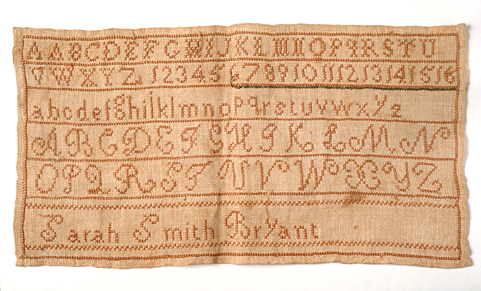 AABCDEFGHIJKLMNOPQRSTU
VWXYZ. 12345678910111213141516
abcdefghilklmnopqrstuvwxyz
ABCDEFSHIKLMN
OPQRSTUVWXYZ
Sarah Smith Bryant